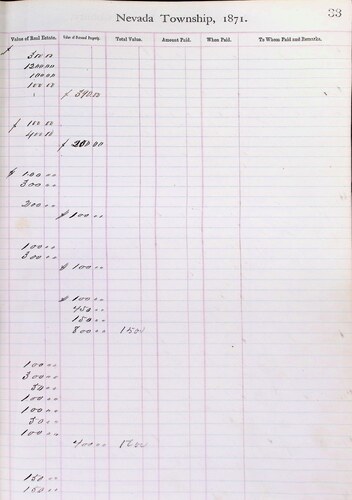 Nevada Township, 1871.
33
Value of Real Estate. Value of Personal Property. Total Value. Amount Paid. When Paid. To Whom Paid and Remarks.
$
300 00
1200 00
100 00
$
$ 100 00
400 00
$ 200 00
$ 100 00
300 00
200 00
$ 100 00
100 00
300 00
$ 100 00
$ 100 00
450 00
150 00
800 00 1500
100 00
300 00
50 00
100 00
100 00
50 00
100 00
400 00
150 00
150 00